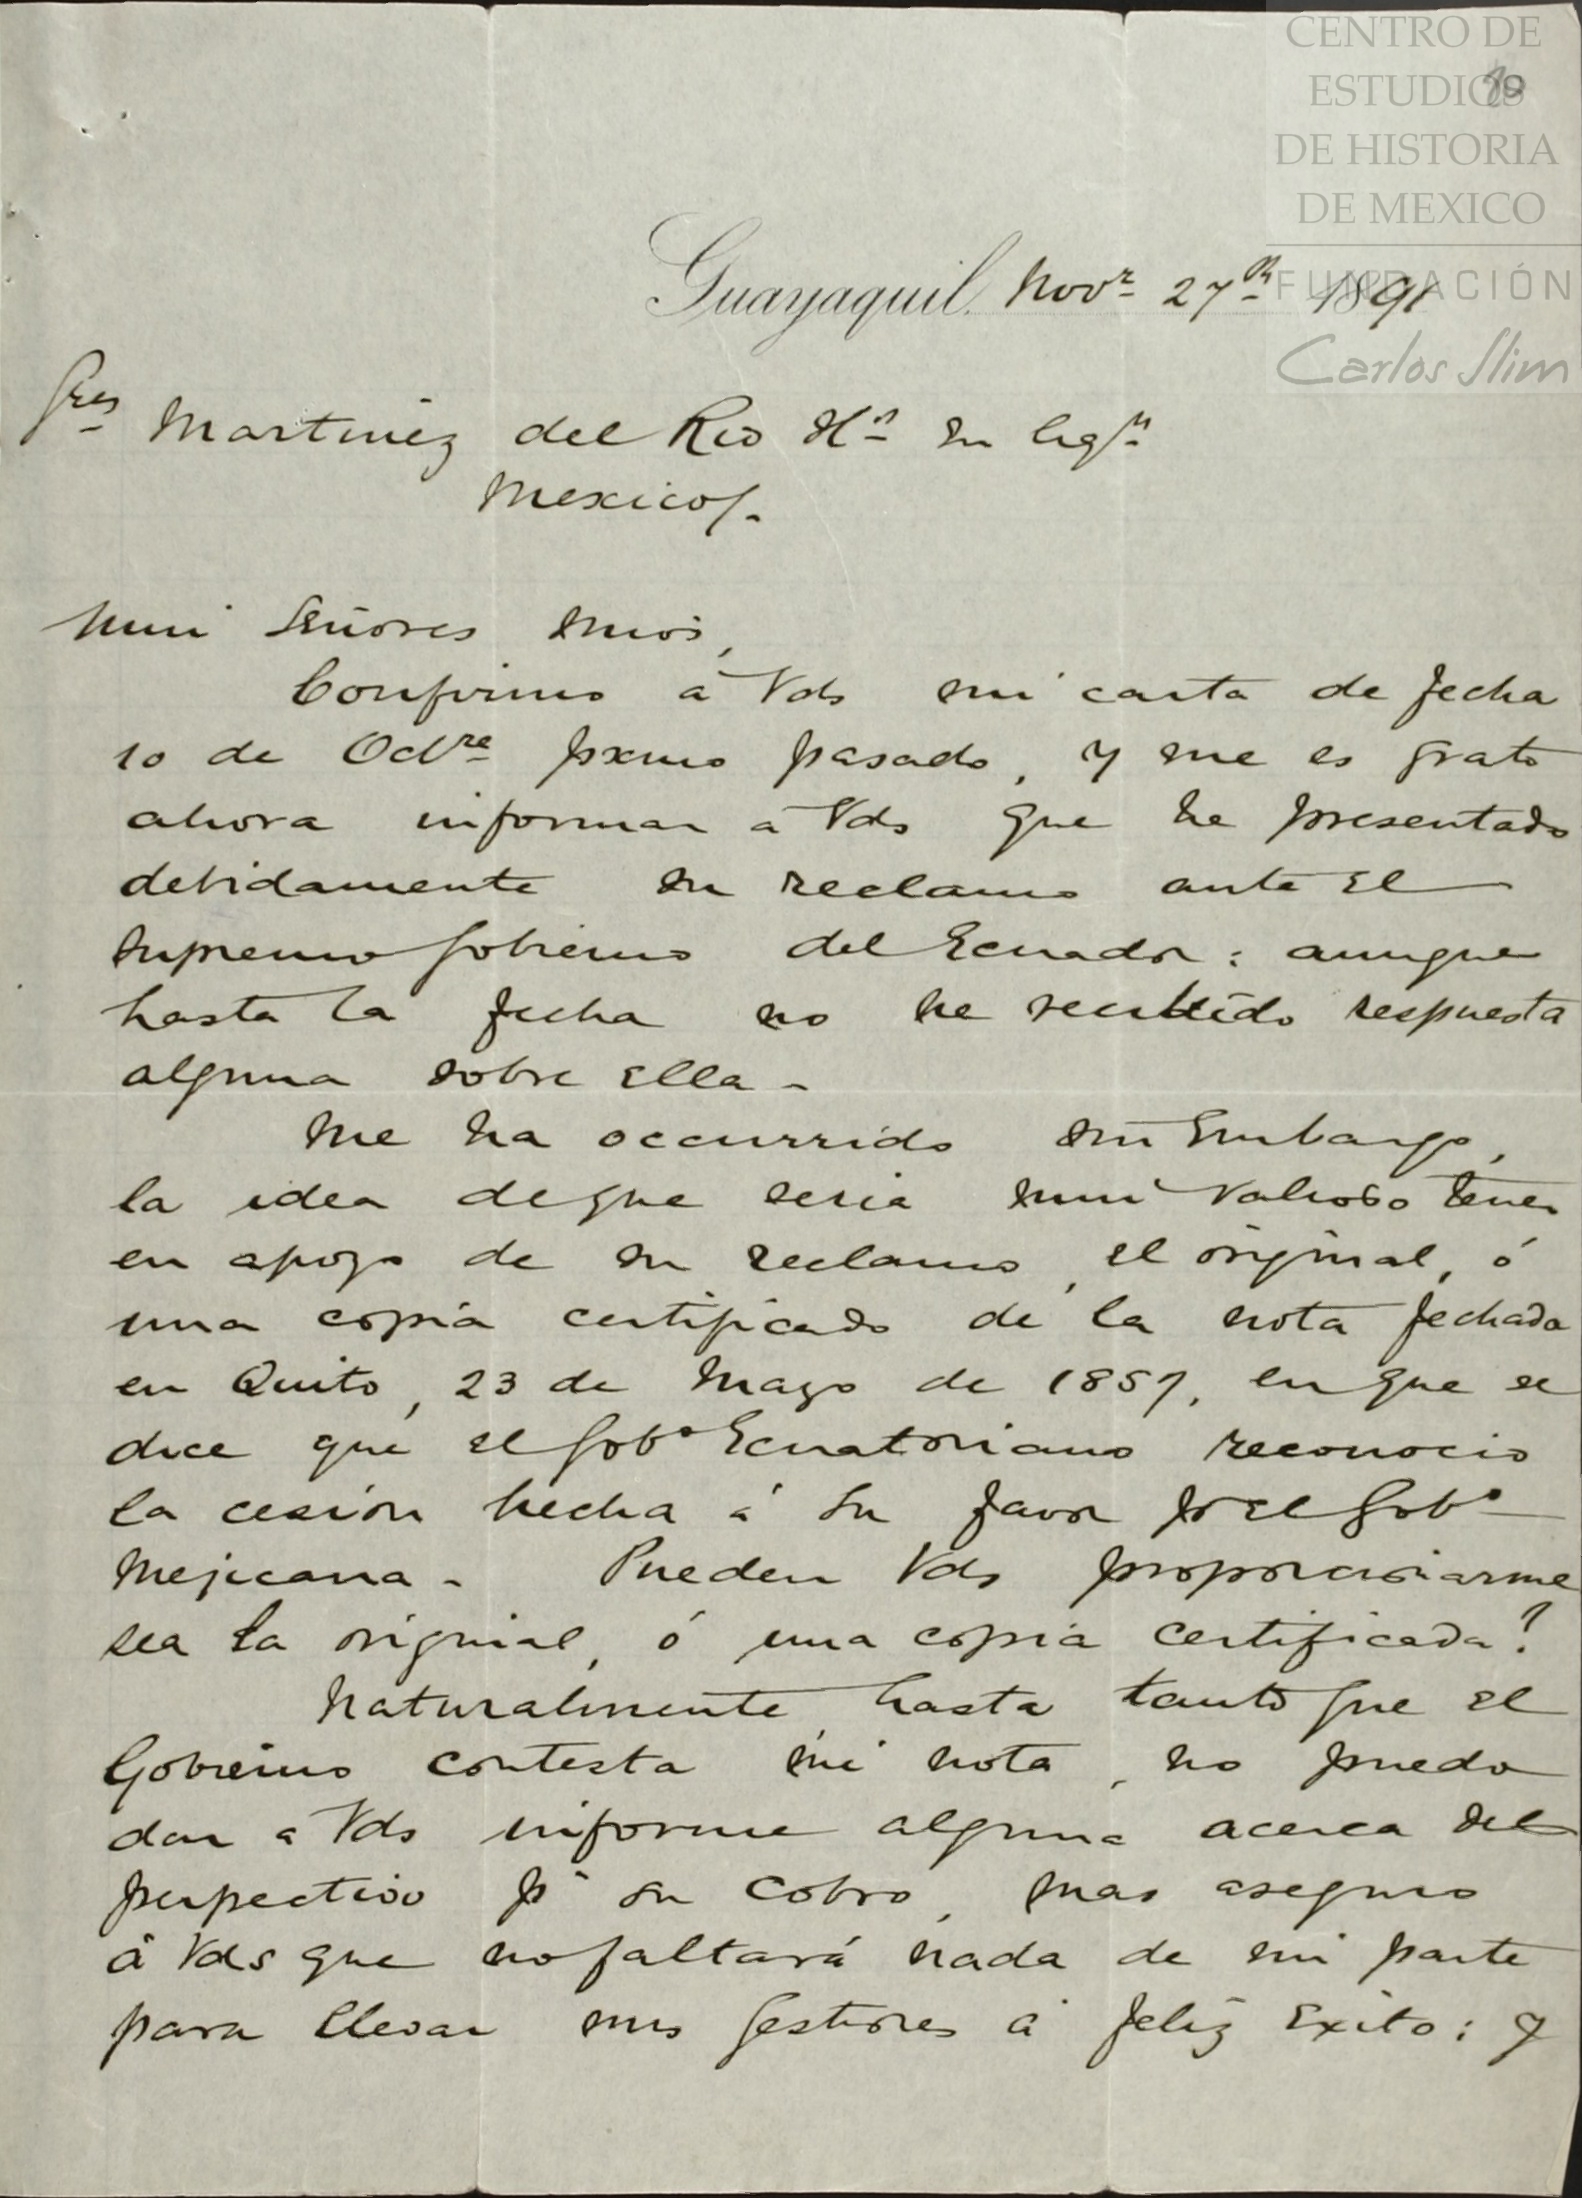 CENTRO DE
ESTUDIOS
DE HISTORIA
DE MEXICO
FUNDACIÓN
Carlos Slim
Guayaquil. Novr 27th 1891
Sres Martinez del Rio Hs en liqn
Mexico/.
Mui Señores mios,
Confirmo á Vds mi carta de fecha
10 de Octre pxmo pasado, y me es grato
ahora informar a Vds que he presentado
debidamente su reclamo ante el
Supremo Gobierno del Ecuador: aunque
hasta la fecha no he recibido respuesta
alguna sobre ella -
Me ha occurrido sin embargo,
la idea deque seria mui valioso tener
en apoyo de su reclamo, el original, ó
una copia certificado de la nota fechada
en Quito, 23 de Mayo de 1857, en que se
dice que el Gobo Ecuatoriano reconocio
la cesión hecha á su favor pr el Gobo
Mejicana - Pueden Vds proporcionarme
sea la original, ó una copia certificada?
Naturalmente, hasta tanto que el
Gobierno contesta mi nota, no puedo
dar a Vds informe alguna acerca del
perpectivo pa su cobro, mas aseguro
á Vds que no faltará nada de mi parte
para llevar mis gestiones á feliz exito: y